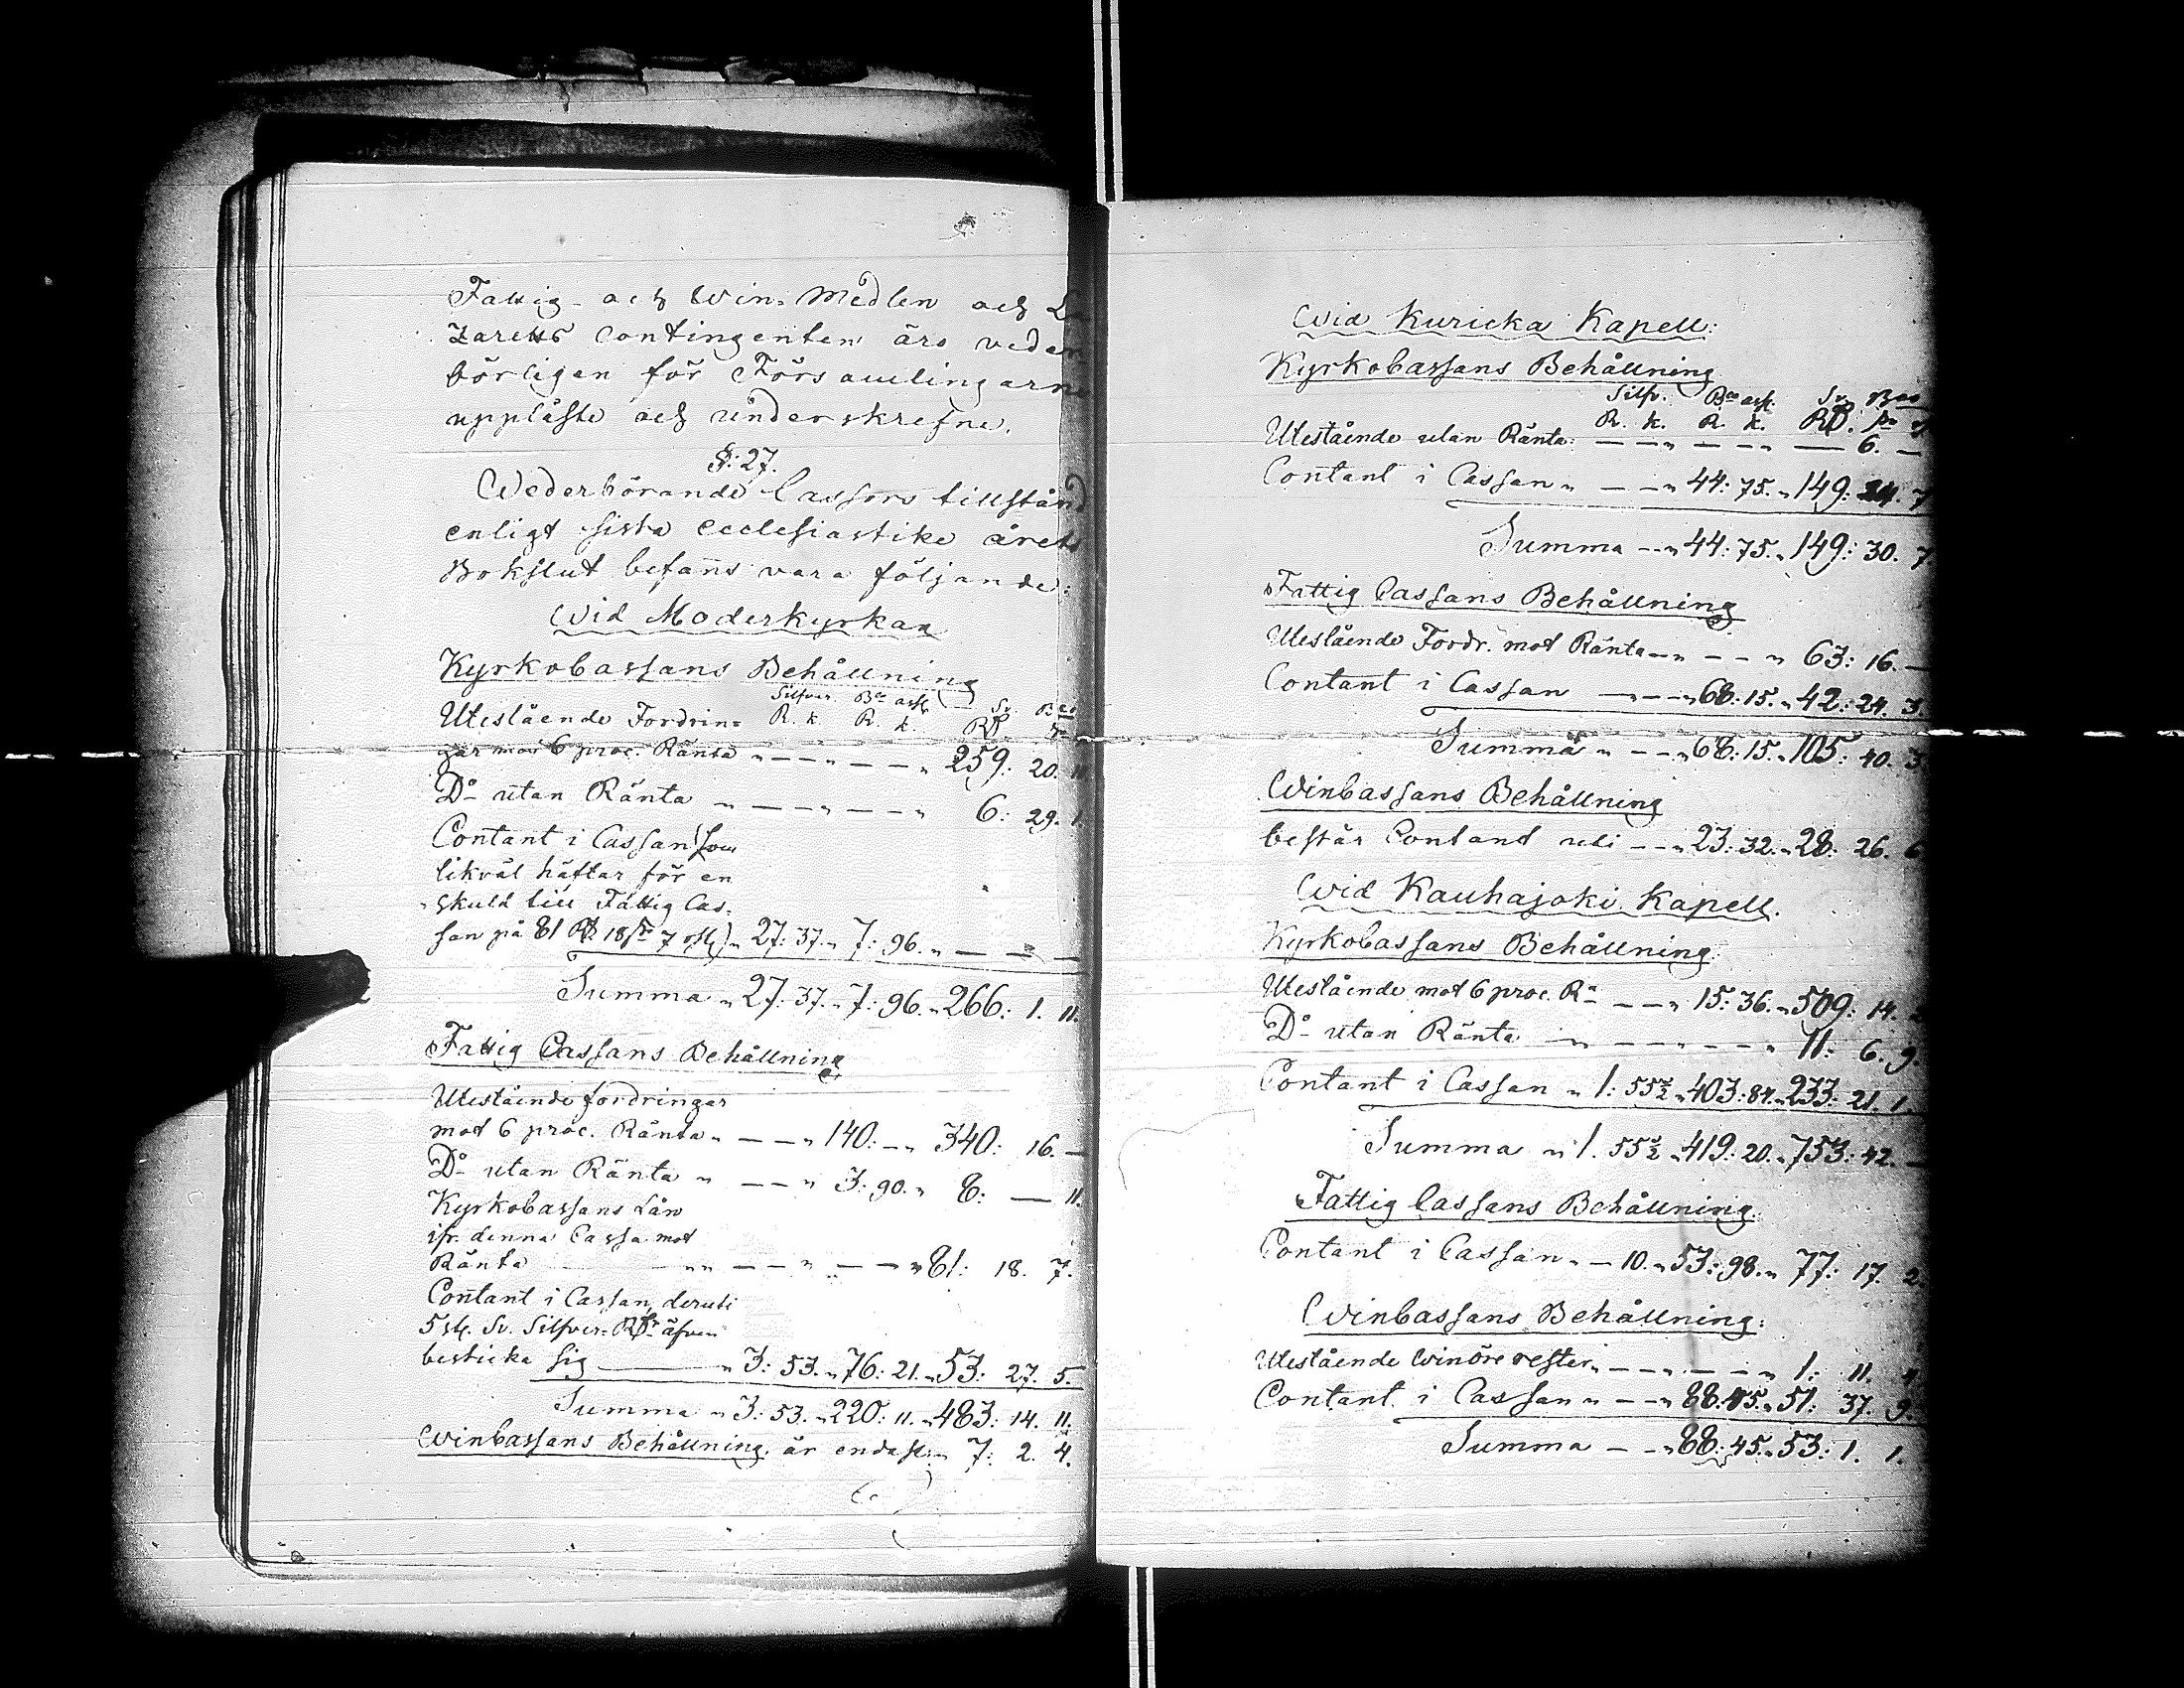 Fattig- och Win-Medlen och La
zaretts Contingenten äro veder
börligen för Församlingarne
uppläste och underskrefne.
§: 27.
Wederbörande Cassors tillstånd
enligt sista Ecclesiastike årets
Bokslut befanns vara följande:
Wid Moderkyrkan
KyrkoCassans Behållning
Silfver Bco ass. Sv. Bco
Utestående Fordrin= R. k. R. k. Rd.
gar mot 6 proc. Ränta „ — — „ — — „ 259: 20. 11
Do utan Ränta „ — — „ — — „ 6: 29. 1.
Contant i Cassan (som
likväl häftar för en
skuld till Fattig Cas-
san på 81 Rd. 18 sk 7 rst) „ 27: 37. „ 7: 96. „ — — —
Summa „ 27: 37. „ 7: 96. „ 266: 1. 11.
Fattig Cassans Behållning
Utestående fordringar
mot 6 proc. Ränta „ — — „ 140: — „ 340: 16. —
Do utan Ränta „ — — „ 3: 90. „ 8: — 11.
KyrkoCassans Lån
ifr. denna Cassa mot
Ränta „ „ — — „ — — „ 81: 18. 7.
Contant i Cassan, deruti
5 st. Sv. Silfver-Rdr äfven
besticka sig — „ 3: 53. „ 76: 21. „ 53: 27. 5.
Summa „ 3: 53. „ 220: 11. „ 483: 14. 11.
WinCassans Behållning är endast „ 7: 2. 4.
Wid Kuricka Kapell:
KyrkoCassans Behållning
Silfv. Bco ass. Sv. Bco
R. k. R. k. Rd. sk
Utestående utan Ränta: — — „ — — „ — 6. —
Contant i Cassan „ — — „ 44: 75. „ 149: 24. 7
Summa — „ 44: 75. „ 149: 30. 7.
Fattig Cassans Behållning
Utestående Fordr. mot Ränta — „ — — „ 63: 16. —
Contant i Cassan — „ — „ 68: 15. „ 42: 24. 3.
Summa „ — — „ 68: 15. „ 105: 40. 3
WinCassans Behållning
består Contant uti — — „ 23: 32. „ 28: 26. 6
Wid Kauhajoki Kapell.
KyrkoCassans Behållning
Utestående mot 6 proc. Ra — — „ 15: 36. „ 509: 14. 2
Do utan Ränta — „ — — „ — — „ 11: 6. 9.
Contant i Cassan „ 1: 55½ „ 403: 84. „ 233: 21. 1.
Summa „ 1. 55½ „ 419: 20. „ 753: 42. —
Fattig Cassans Behållning
Contant i Cassan „ — 10. „ 53: 98. „ 77: 17. 2.
WinCassans Behållning:
Utestående Winöre rester „ — — „ — — „ 1: 11. 4
Contant i Cassan „ — — „ 88: 45. „ 51: 37. 9.
Summa — — „ 88: 45. „ 53: 1. 1.